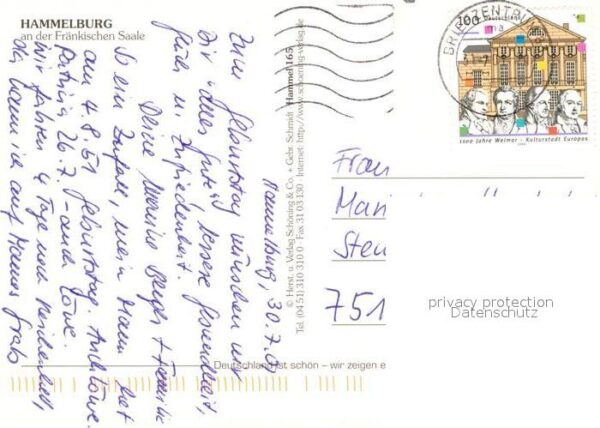 HAMMELBURG
an der Fränkischen Saale
Hammelburg, 30.7.
Zum Geburtstag wünschen wir
Dir alles Gute, bessere Gesundheit,
Glück u. Zufriedenheit.
Deine + Familie
So ein Zufall, mein Mann hat
am 4.8.51 Geburtstag. Auch Löwe.
Patricia 26.7. - auch Löwe.
Wir fahren 4 Tage nach
© Herst. u. Verlag Schöning & Co. + Gebr. Schmidt Hammel 165
Tel. (04 51) 310 310 0 · Fax 31 03 130 · Internet: http://www.schoening-verlag.de
Deutschland ist schön – wir zeigen e
BRIEFZENTRUM
100 Deutschland
1100 Jahre Weimar - Kulturstadt Europas
Frau
Mari
Sten
751
privacy protection
Datenschutz